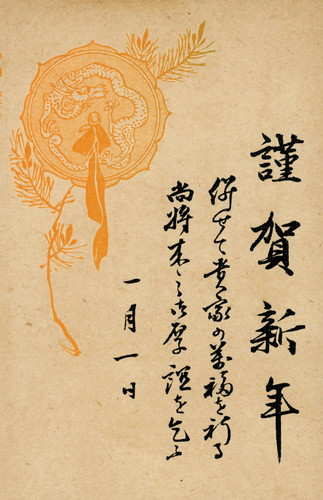 謹賀新年
併せて貴家の萬福を祈る
尚将来之御厚誼を乞ふ
一月一日